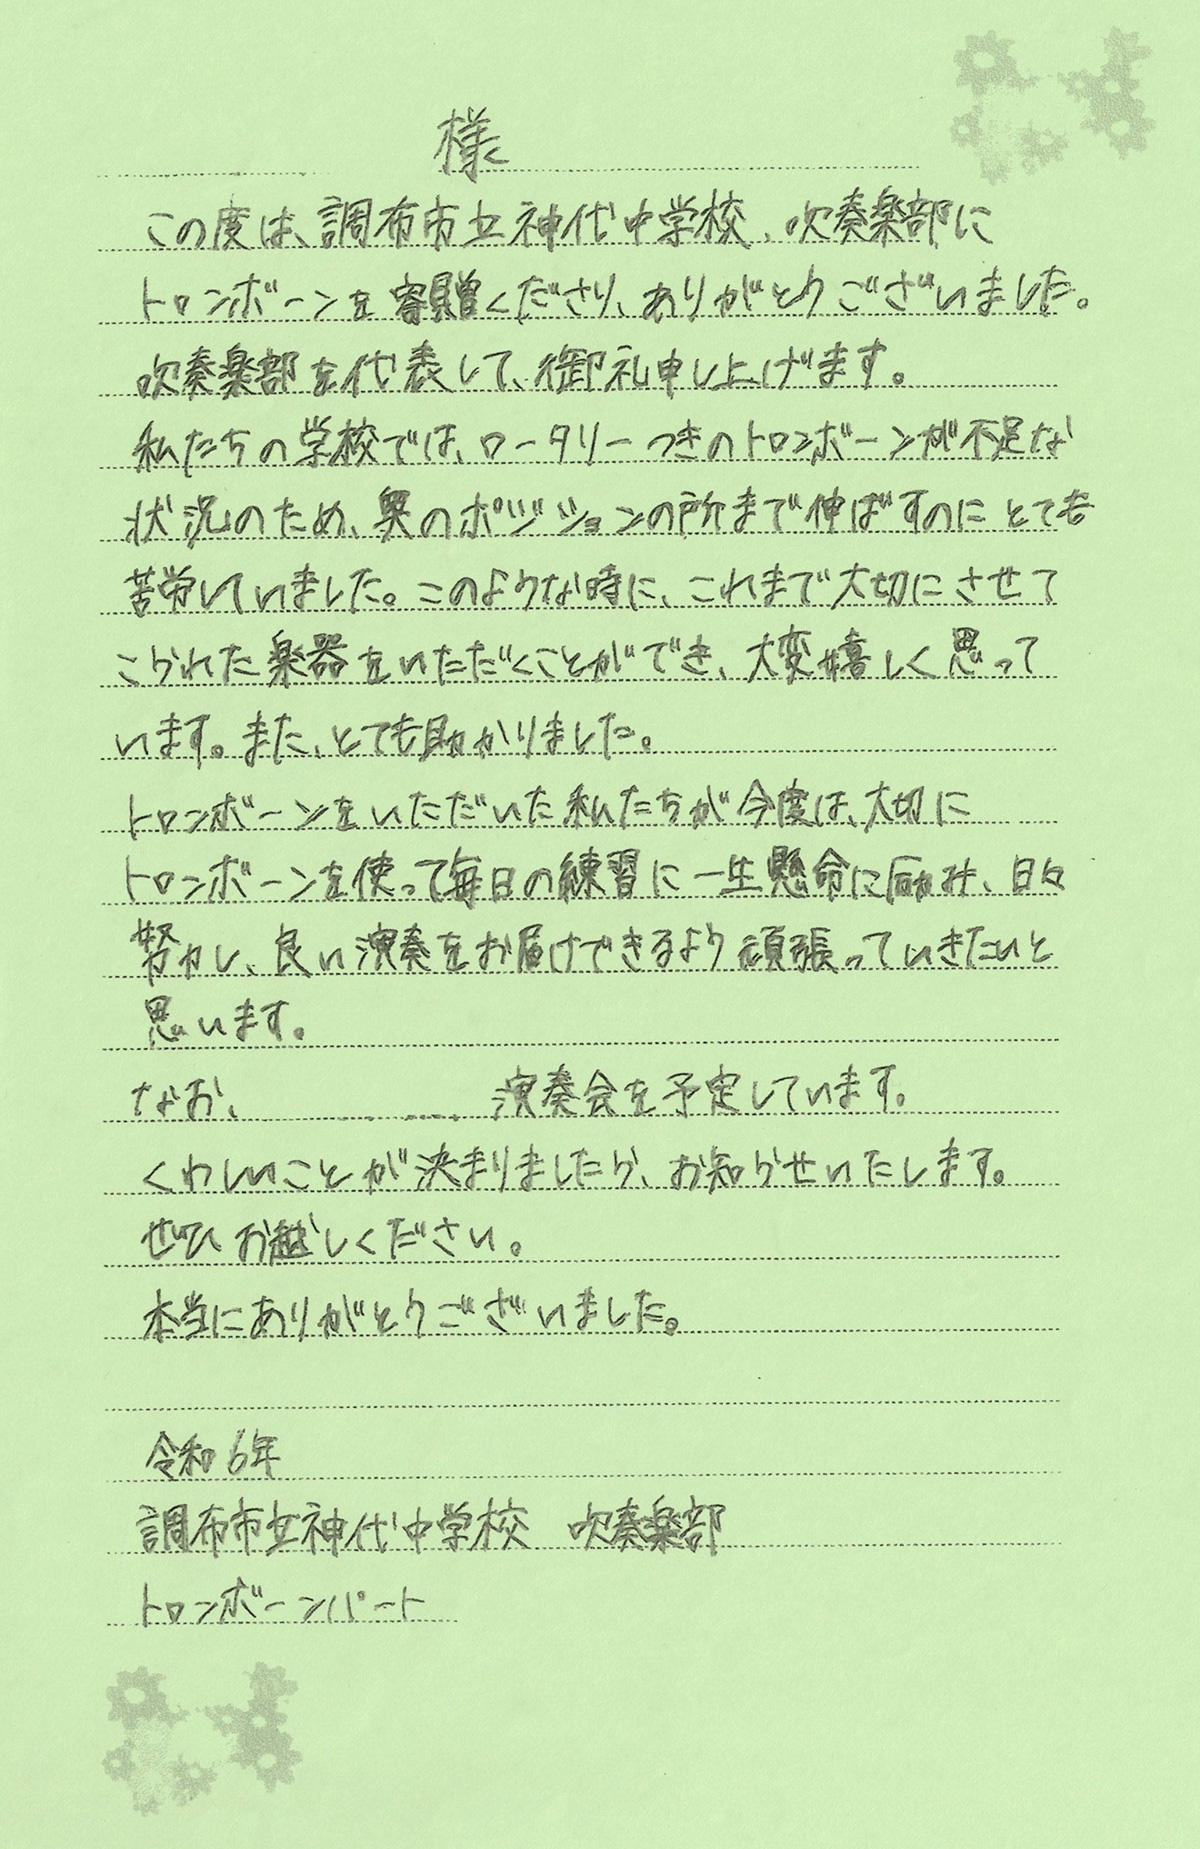 様
この度は、調布市立神代中学校、吹奏楽部に
トロンボーンを寄贈くださり、ありがとうございました。
吹奏楽部を代表して、御礼申し上げます。
私たちの学校では、ロータリーつきのトロンボーンが不足な
状況のため、奥のポジションの所まで伸ばすのにとても
苦労していました。このような時に、これまで大切にさせて
こられた楽器をいただくことができ、大変嬉しく思って
います。また、とても助かりました。
トロンボーンをいただいた私たちが今度は、大切に
トロンボーンを使って毎日の練習に一生懸命に励み、日々
努力し、良い演奏をお届けできるよう頑張っていきたいと
思います。
なお、 演奏会を予定しています。
くわしいことが決まりましたら、お知らせいたします。
ぜひお越しください。
本当にありがとうございました。
令和6年
調布市立神代中学校 吹奏楽部
トロンボーンパート